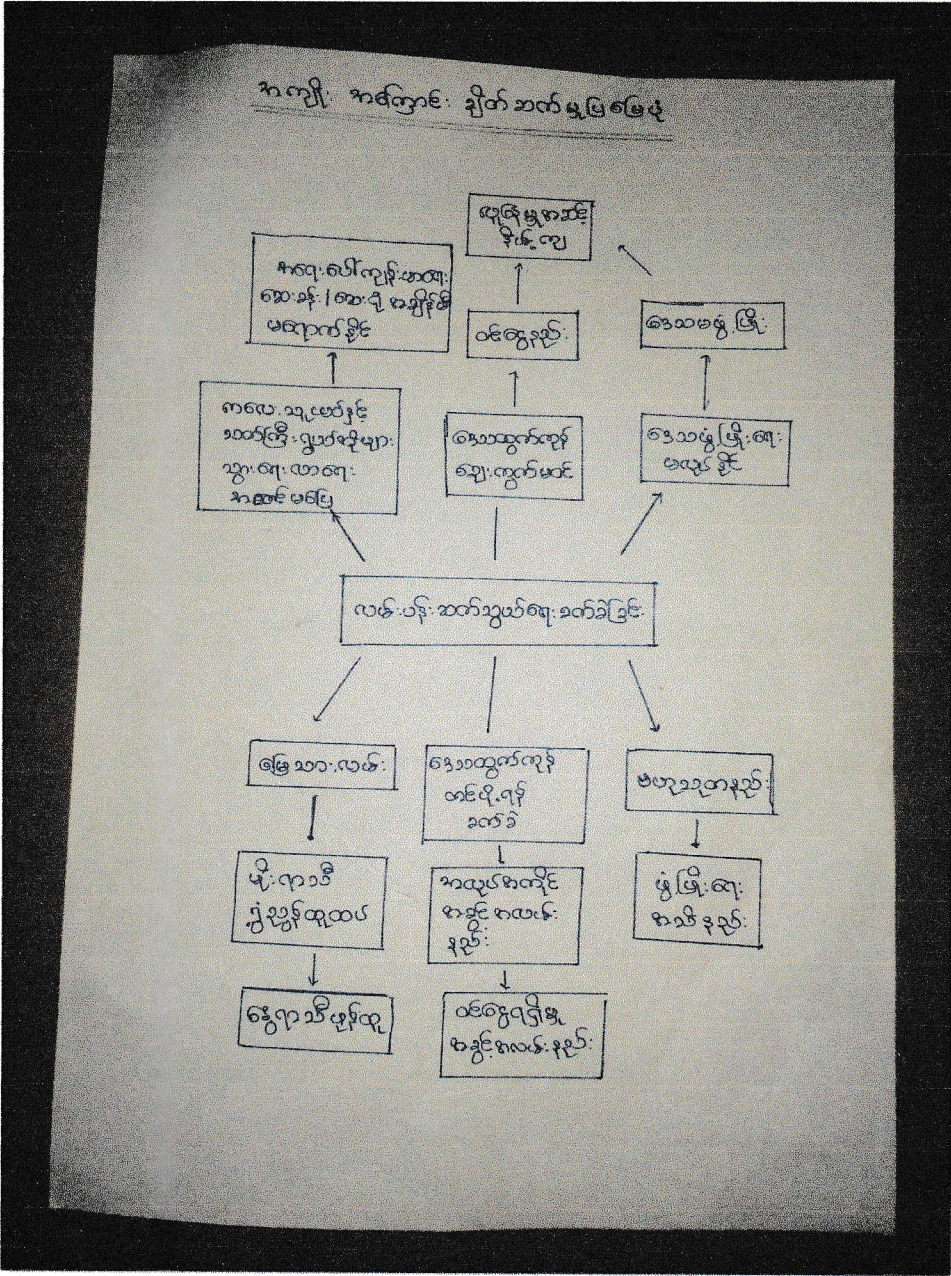 အကျိုး အကြောင်း ချိတ်ဆက်မှုပြမြေပုံ
လူနေမှုအဆင့်
နိမ့်ကျ
အရေးပေါ်ကျန်းမာရေး
ဆေးခန်း/ဆေးရုံ အချိန်မီ
မရောက်နိုင်
ဝင်ငွေနည်း
ဒေသမဖွံ့ဖြိုး
ကလေးသူငယ်နှင့်
သက်ကြီးရွယ်အိုများ
သွားရေးလာရေး
အဆင်မပြေ
ဒေသထွက်ကုန်
ဈေးကွက်မဝင်
ဒေသဖွံ့ဖြိုးရေး
မလုပ်နိုင်
လမ်းပန်းဆက်သွယ်ရေးခက်ခဲခြင်း
မြေသားလမ်း
ဒေသထွက်ကုန်
တင်ပို့ရန်
ခက်ခဲ
ဗဟုသုတနည်း
မိုးရာသီ
ရွှံ့ညွှန်ထူထပ်
အလုပ်အကိုင်
အခွင့်အလမ်း
နည်း
ဖွံ့ဖြိုးရေး
အသိနည်း
နွေရာသီဖုန်ထူ
ဝင်ငွေရရှိမှု
အခွင့်အလမ်းနည်း